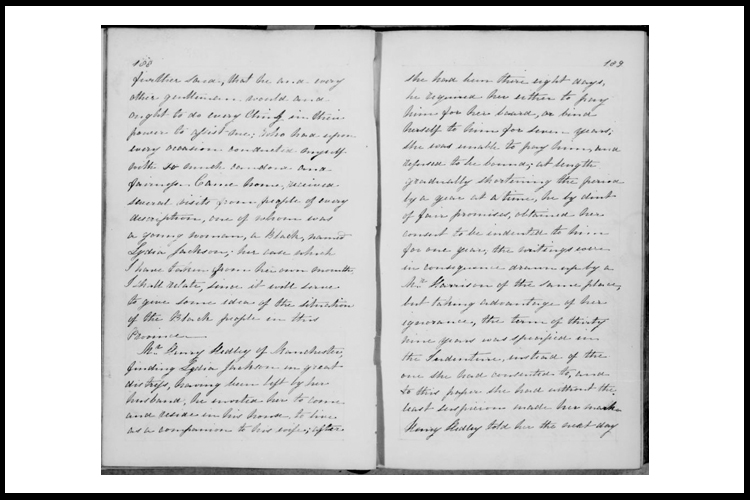 108
further said, that he and every
other gentleman would and
ought to do every thing in their
power to assist me; who had upon
every occasion conducted myself
with so much candour and
fairness. Came home, received
several visits from people of every
description, one of whom was
a young woman, a Black, named
Lydia Jackson; her case which
I have taken from her own mouth
I shall relate, since it will serve
to give some idea of the situation
of the Black people in this
Province.
Mr. Henry Hedley of Manchester,
finding Lydia Jackson in great
distress, having been left by her
husband, he invited her to come
and reside in his house, to live
as a companion to his wife; after
109
she had been there eight days,
he required her either to pay
him for her board, or bind
herself to him for seven years;
she was unable to pay him, and
refused to be bound; at length
gradually shortening the period
by a year at a time, he by dint
of fair promises, obtained her
consent to be indented to him
for one year, the writings were
in consequence drawn up by a
Mr. Harrison of the same place,
but taking advantage of her
ignorance, the term of thirty
nine years was specified in
the Indenture, instead of the
one she had consented to, and
to this paper she had without the
least suspicion made her mark
Henry Hedley told her the next day